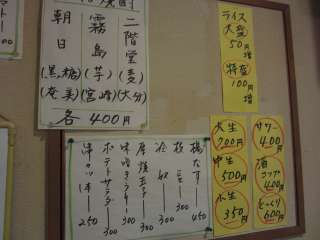 焼酎
二階堂(麦)
(大分)
霧島(芋)
(宮崎)
朝日(黒糖)
(奄美)
各400円
ライス
大盛
50円増
特盛
100円増
大生
700円
中生
500円
小生
350円
サワー
400円
酒
コップ
400円
とっくり
600円
揚なす
450
枝豆
300
冷奴
300
厚焼玉子
300
味噌きゅうり
300
ポテトサラダ
300
串カツ1本
250